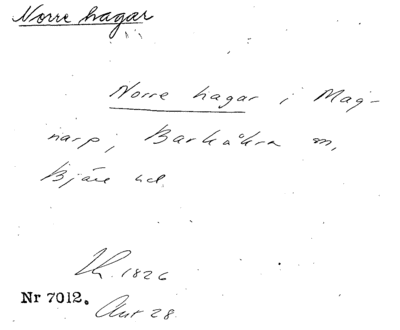 Norre hagar
Norre hagar i Mag-
narp, Barkåkra sn,
Bjäre hd.
Lk. 1826
Nr 7012.
Akt 28.